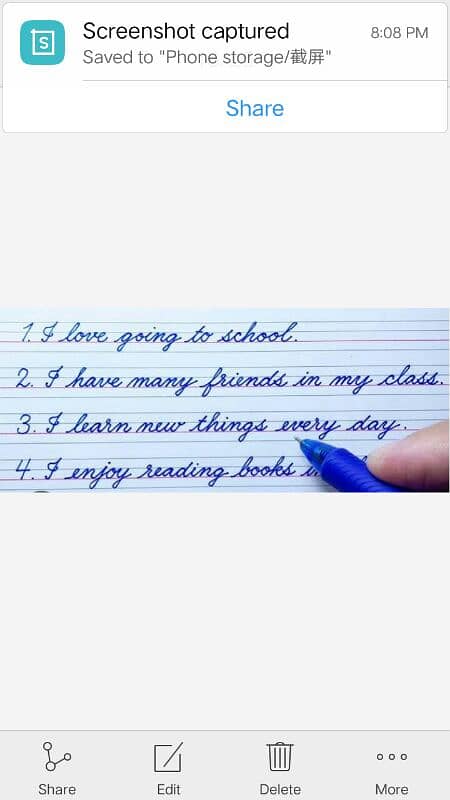 Screenshot captured
8:08 PM
Saved to "Phone storage/截屏"
Share
1. I love going to school.
2. I have many friends in my class.
3. I learn new things every day.
4. I enjoy reading books
Share
Edit
Delete
More